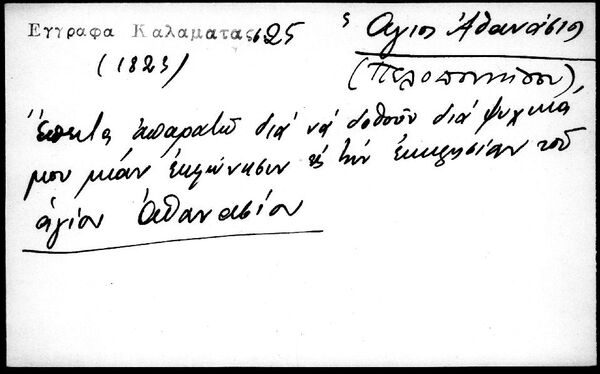 Εγγραφα Καλαματας 625
ς Άγιος Ἀθανάσιος
(1823)
(Πελοποννήσου)
Ἔπειτα ἀπαρατῶ διά νά δοθοῦν διά ψυχικά
μου μίαν ἐκφώνησιν εἰς τήν ἐκκλησίαν τοῦ
ἁγίου Ἀθανασίου